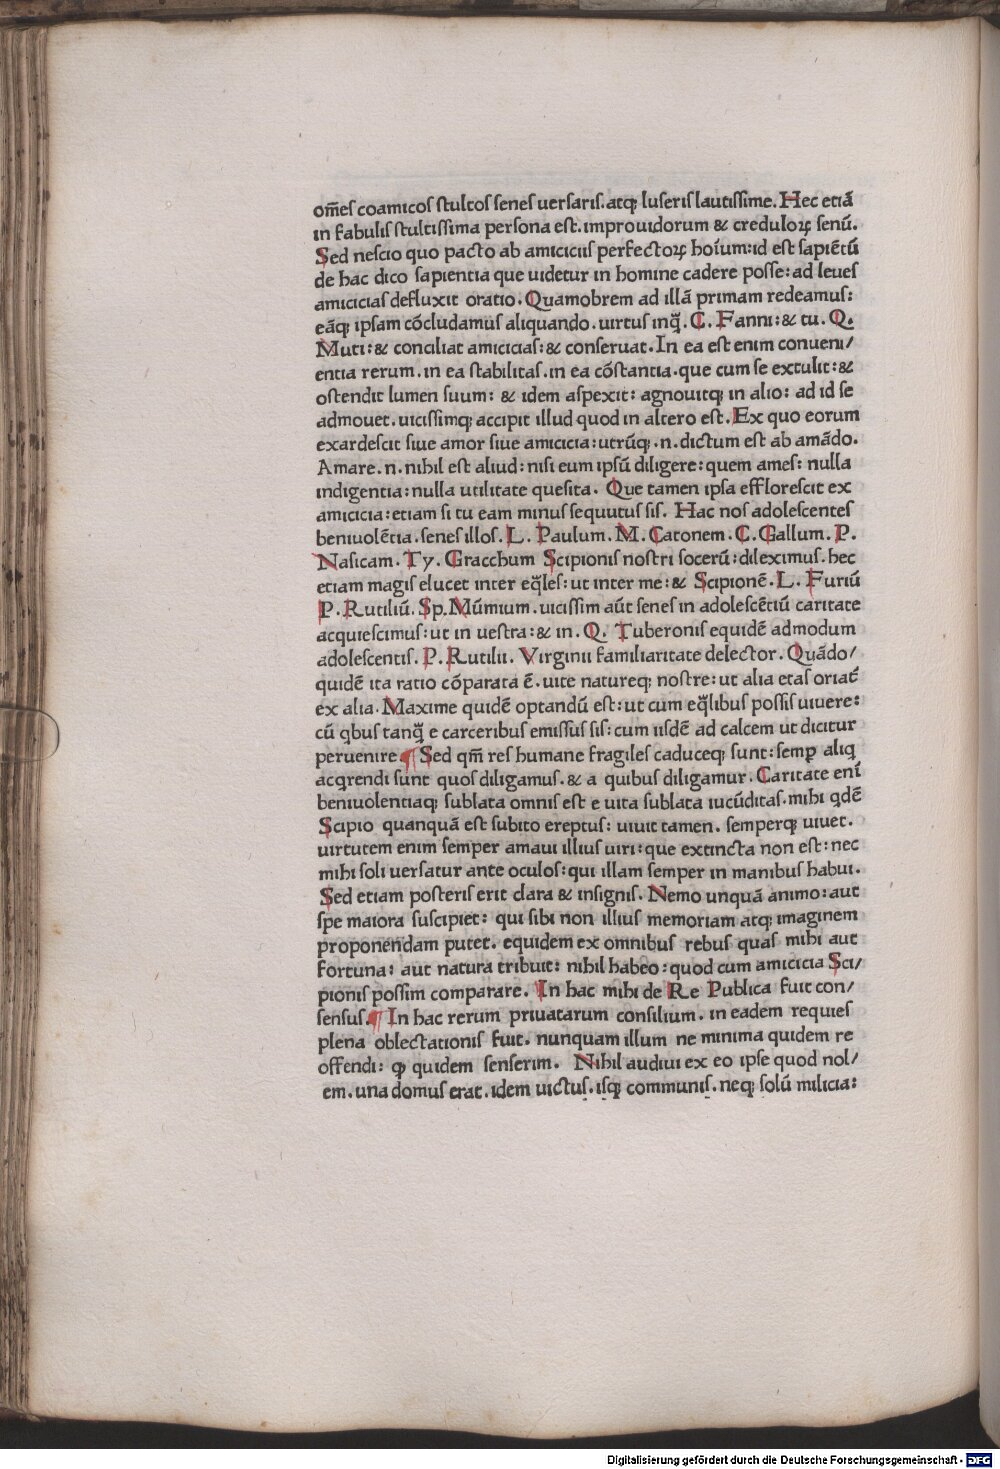 om̄es coamicoſ ſtultoſ ſeneſ uerſariſ. atqꝫ luſeriſ lautiſſime. Hec etiā
in fabuliſ ſtultiſſima perſona eſt. improuidorum & creduloꝝ ſenū.
Sed neſcio quo pacto ab amiciciiſ perfectoꝝ hoīum: id eſt ſapiētū
de hac dico ſapientia que uidetur in homine cadere poſſe: ad leueſ
amiciciaſ defluxit oratio. Quamobrem ad illā primam redeamuſ:
eāqꝫ ipſam cōcludamuſ aliquando. uirtuſ inq̄. C. Fanni: & tu. Q.
Muti: & conciliat amiciciaſ: & conſeruat. In ea eſt enim conueni/
entia rerum. in ea ſtabilitaſ. in ea cōſtantia. que cum ſe extulit: &
oſtendit lumen ſuum: & idem aſpexit: agnouitqꝫ in alio: ad id ſe
admouet. uiciſſimqꝫ accipit illud quod in altero eſt. Ex quo eorum
exardeſcit ſiue amor ſiue amicicia: utrūqꝫ. n. dictum eſt ab amādo.
Amare. n. nihil eſt aliud: niſi eum ipſū diligere: quem ameſ: nulla
indigentia: nulla utilitate queſita. Que tamen ipſa effloreſcit ex
amicicia: etiam ſi tu eam minuſ ſequutuſ ſiſ. Hac noſ adoleſcenteſ
beniuolētia. ſeneſ illoſ. L. Paulum. M. Catonem. C. Gallum. P.
Naſicam. Ty. Gracchum Scipioniſ noſtri ſocerū: dileximuſ. hec
etiam magiſ elucet inter eq̄leſ: ut inter me: & Scipionē. L. Furiū
P. Rutiliū. Sp. Mūmium. uiciſſim aūt ſeneſ in adoleſcētiū caritate
acquieſcimuſ: ut in ueſtra: & in. Q. Tuberoniſ equidē admodum
adoleſcentiſ. P. Rutilii. Virginii familiaritate delector. Quādo/
quidē ita ratio cōparata ē. uite natureqꝫ noſtre: ut alia etaſ oriat᷑
ex alia. Maxime quidē optandū eſt: ut cum eq̄libuſ poſſiſ uiuere:
cū qbuſ tanq̄ e carceribuſ emiſſuſ ſiſ: cum iiſdē ad calcem ut dicitur
peruenire ¶ Sed qm̄ reſ humane fragileſ caduceqꝫ ſunt: ſemꝑ aliq
acqrendi ſunt quoſ diligamuſ. & a quibuſ diligamur. Caritate enī
beniuolentiaqꝫ ſublata omniſ eſt e uita ſublata iucūditaſ. mihi qdē
Scipio quanquā eſt ſubito ereptuſ: uiuit tamen. ſemperqꝫ uiuet.
uirtutem enim ſemper amaui illiuſ uiri: que extincta non eſt: nec
mihi ſoli uerſatur ante oculoſ: qui illam ſemper in manibuſ habui.
Sed etiam poſteriſ erit clara & inſigniſ. Nemo unquā animo: aut
ſpe maiora ſuſcipiet: qui ſibi non illiuſ memoriam atqꝫ imaginem
proponendam putet. equidem ex omnibuſ rebuſ quaſ mihi aut
fortuna: aut natura tribuit: nihil habeo: quod cum amicicia Sci/
pioniſ poſſim comparare. In hac mihi de Re Publica fuit con/
ſenſuſ. ¶ In hac rerum priuatarum conſilium. in eadem requieſ
plena oblectationiſ fuit. nunquam illum ne minima quidem re
offendi: ꝙ quidem ſenſerim. Nihil audiui ex eo ipſe quod nol/
em. una domuſ erat. idem uictuſ. iſqꝫ communiſ. neqꝫ ſolū milicia:
Digitalisierung gefördert durch die Deutsche Forschungsgemeinschaft - DFG